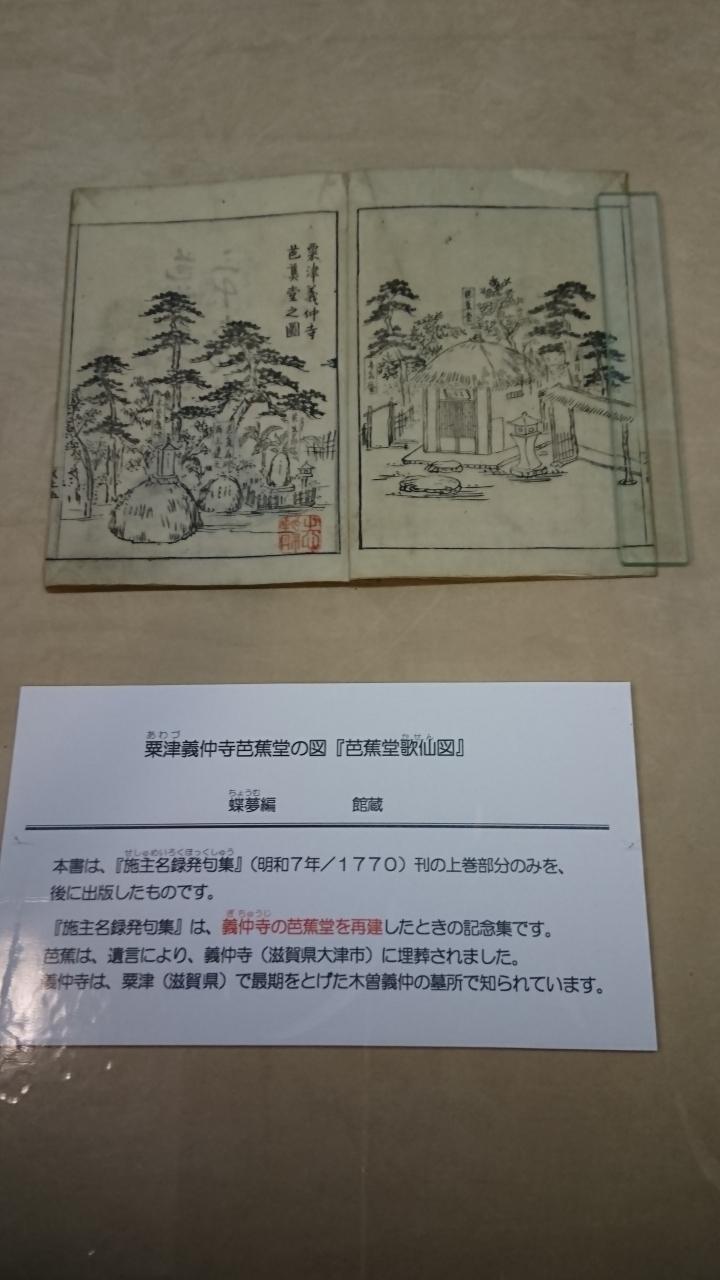 粟津義仲寺
芭蕉堂之圖
あわづ
かせん
粟津義仲寺芭蕉堂の図『芭蕉堂歌仙図』
ちょうむ
蝶夢編 館蔵
せしゅめいろくほっくしゅう
本書は、『施主名録発句集』（明和7年／1770）刊の上巻部分のみを、
後に出版したものです。
ぎちゅうじ
『施主名録発句集』は、義仲寺の芭蕉堂を再建したときの記念集です。
芭蕉は、遺言により、義仲寺（滋賀県大津市）に埋葬されました。
義仲寺は、粟津（滋賀県）で最期をとげた木曽義仲の墓所で知られています。